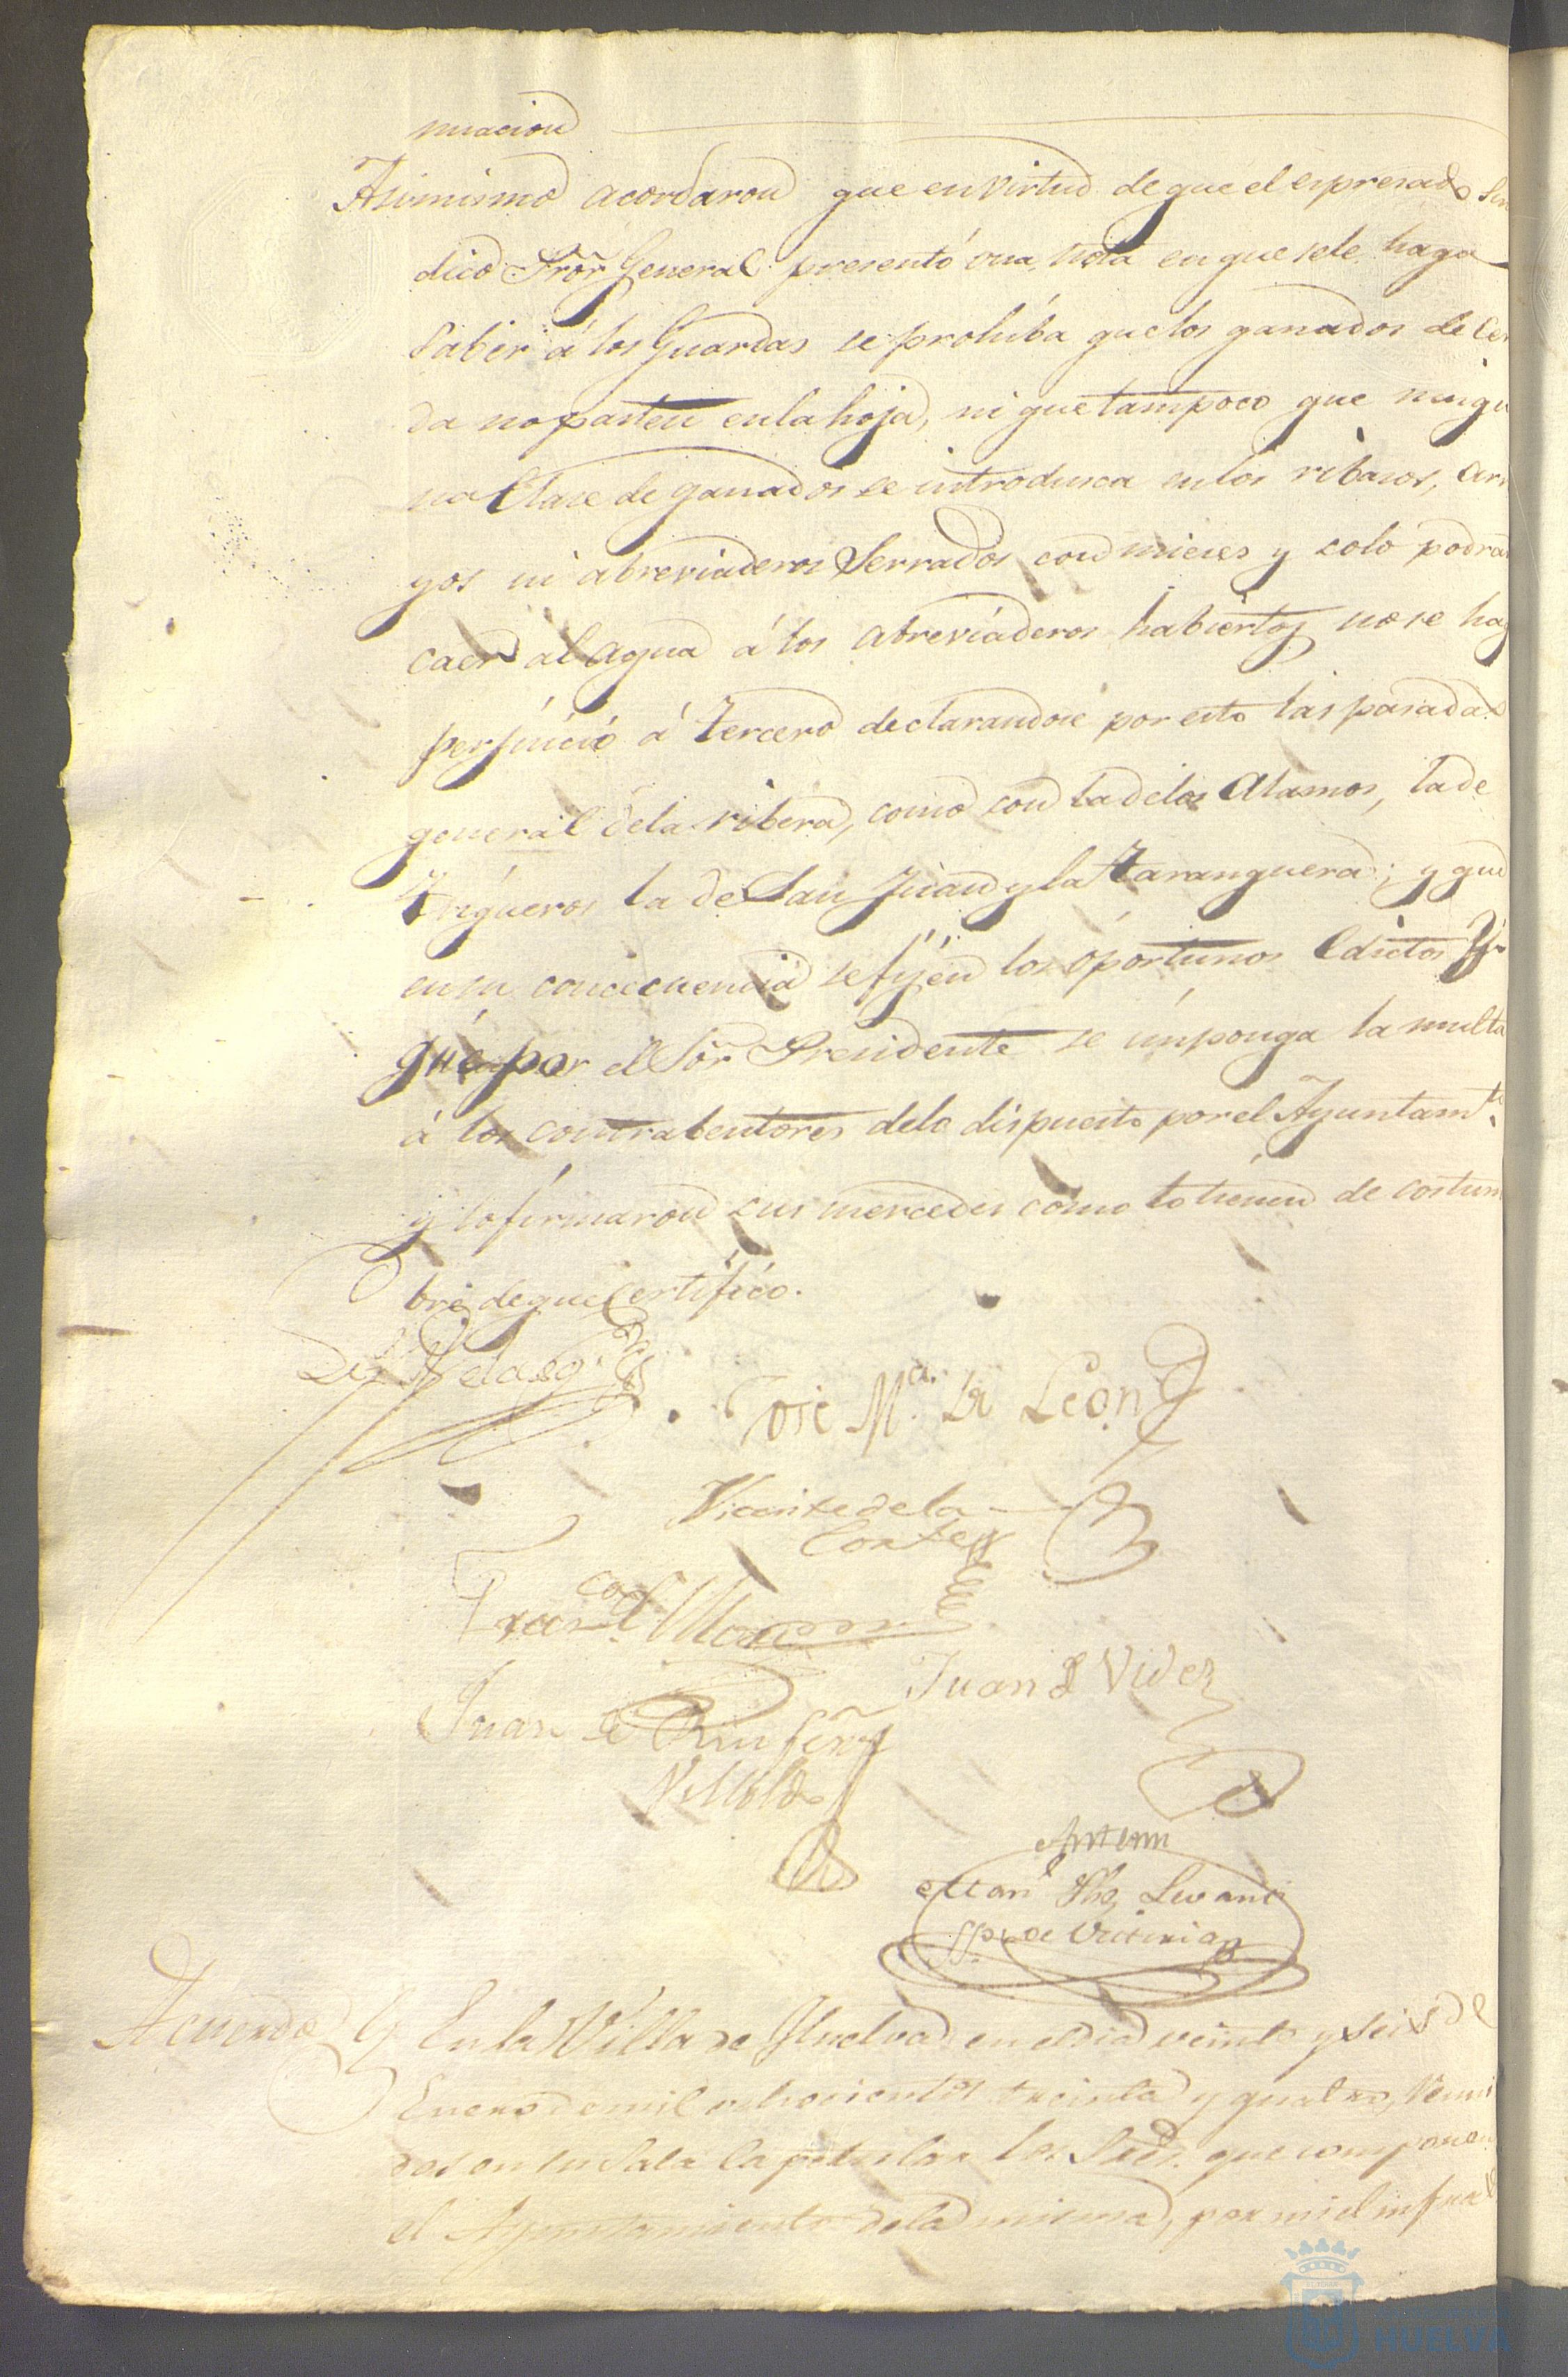 nuacion
Asimismo acordaron que en virtud de que el espresado Sin
dico Pror̃ General presentó una nota en que sele haga
saber á los Guardas se prohiba quelos ganados de Cer
da no pasten enla hoja, ni que tampoco que ningu
na Clase de ganados se introdusca en los ribasos, arr
yos ni abreviaderos Serrados con mieses y solo podran
caer al agua á los abreviaderos habiertos no se hag
perjuicio á tercero declarandose por esto las pasadas
general dela ribera, como son la delos Alamos, la de
Trigueros la de San Juan y la Taranguera; y que
en su concecuencia se fijen los oportunos Edictos y
que por el Sor̃ Presidente se imponga la multa
á los contrabentores delo dispuesto por el Ayuntamto.
y lo firmaron sus mercedes como lo tienen de costum
bre de que Certifico.
José Ma. de León
Vicente de la
Corte
Franco.
Juan de Videz
Juan de
Antemi
Manl.
Acuerdo En la Villa de Huelva en el dia veinte y seis de
Enero de mil ochocientos treinta y quatro, reuni
dos en su Sala Capitular los Sres. que componen
el Ayuntamiento dela misma, por mi el infra
HUELVA